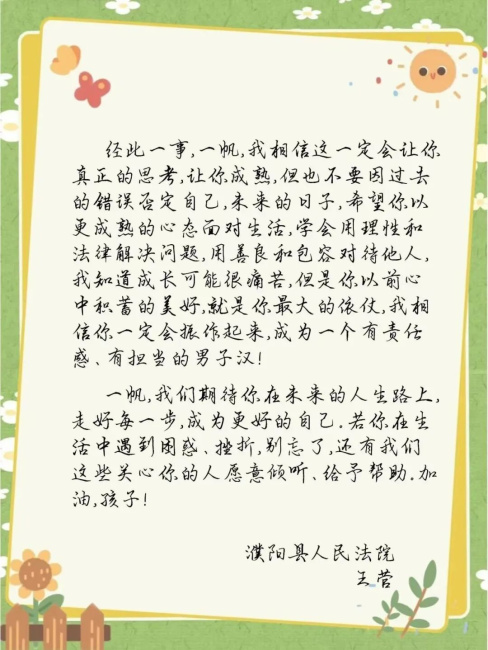 经此一事,一帆,我相信这一定会让你
真正的思考,让你成熟,但也不要因过去
的错误否定自己,未来的日子,希望你以
更成熟的心态面对生活,学会用理性和
法律解决问题,用善良和包容对待他人,
我知道成长可能很痛苦,但是你以前心
中积蓄的美好,就是你最大的依仗,我相
信你一定会振作起来,成为一个有责任
感、有担当的男子汉!
一帆,我们期待你在未来的人生路上,
走好每一步,成为更好的自己.若你在生
活中遇到困惑、挫折,别忘了,还有我们
这些关心你的人愿意倾听、给予帮助.加
油,孩子!
濮阳县人民法院
王营